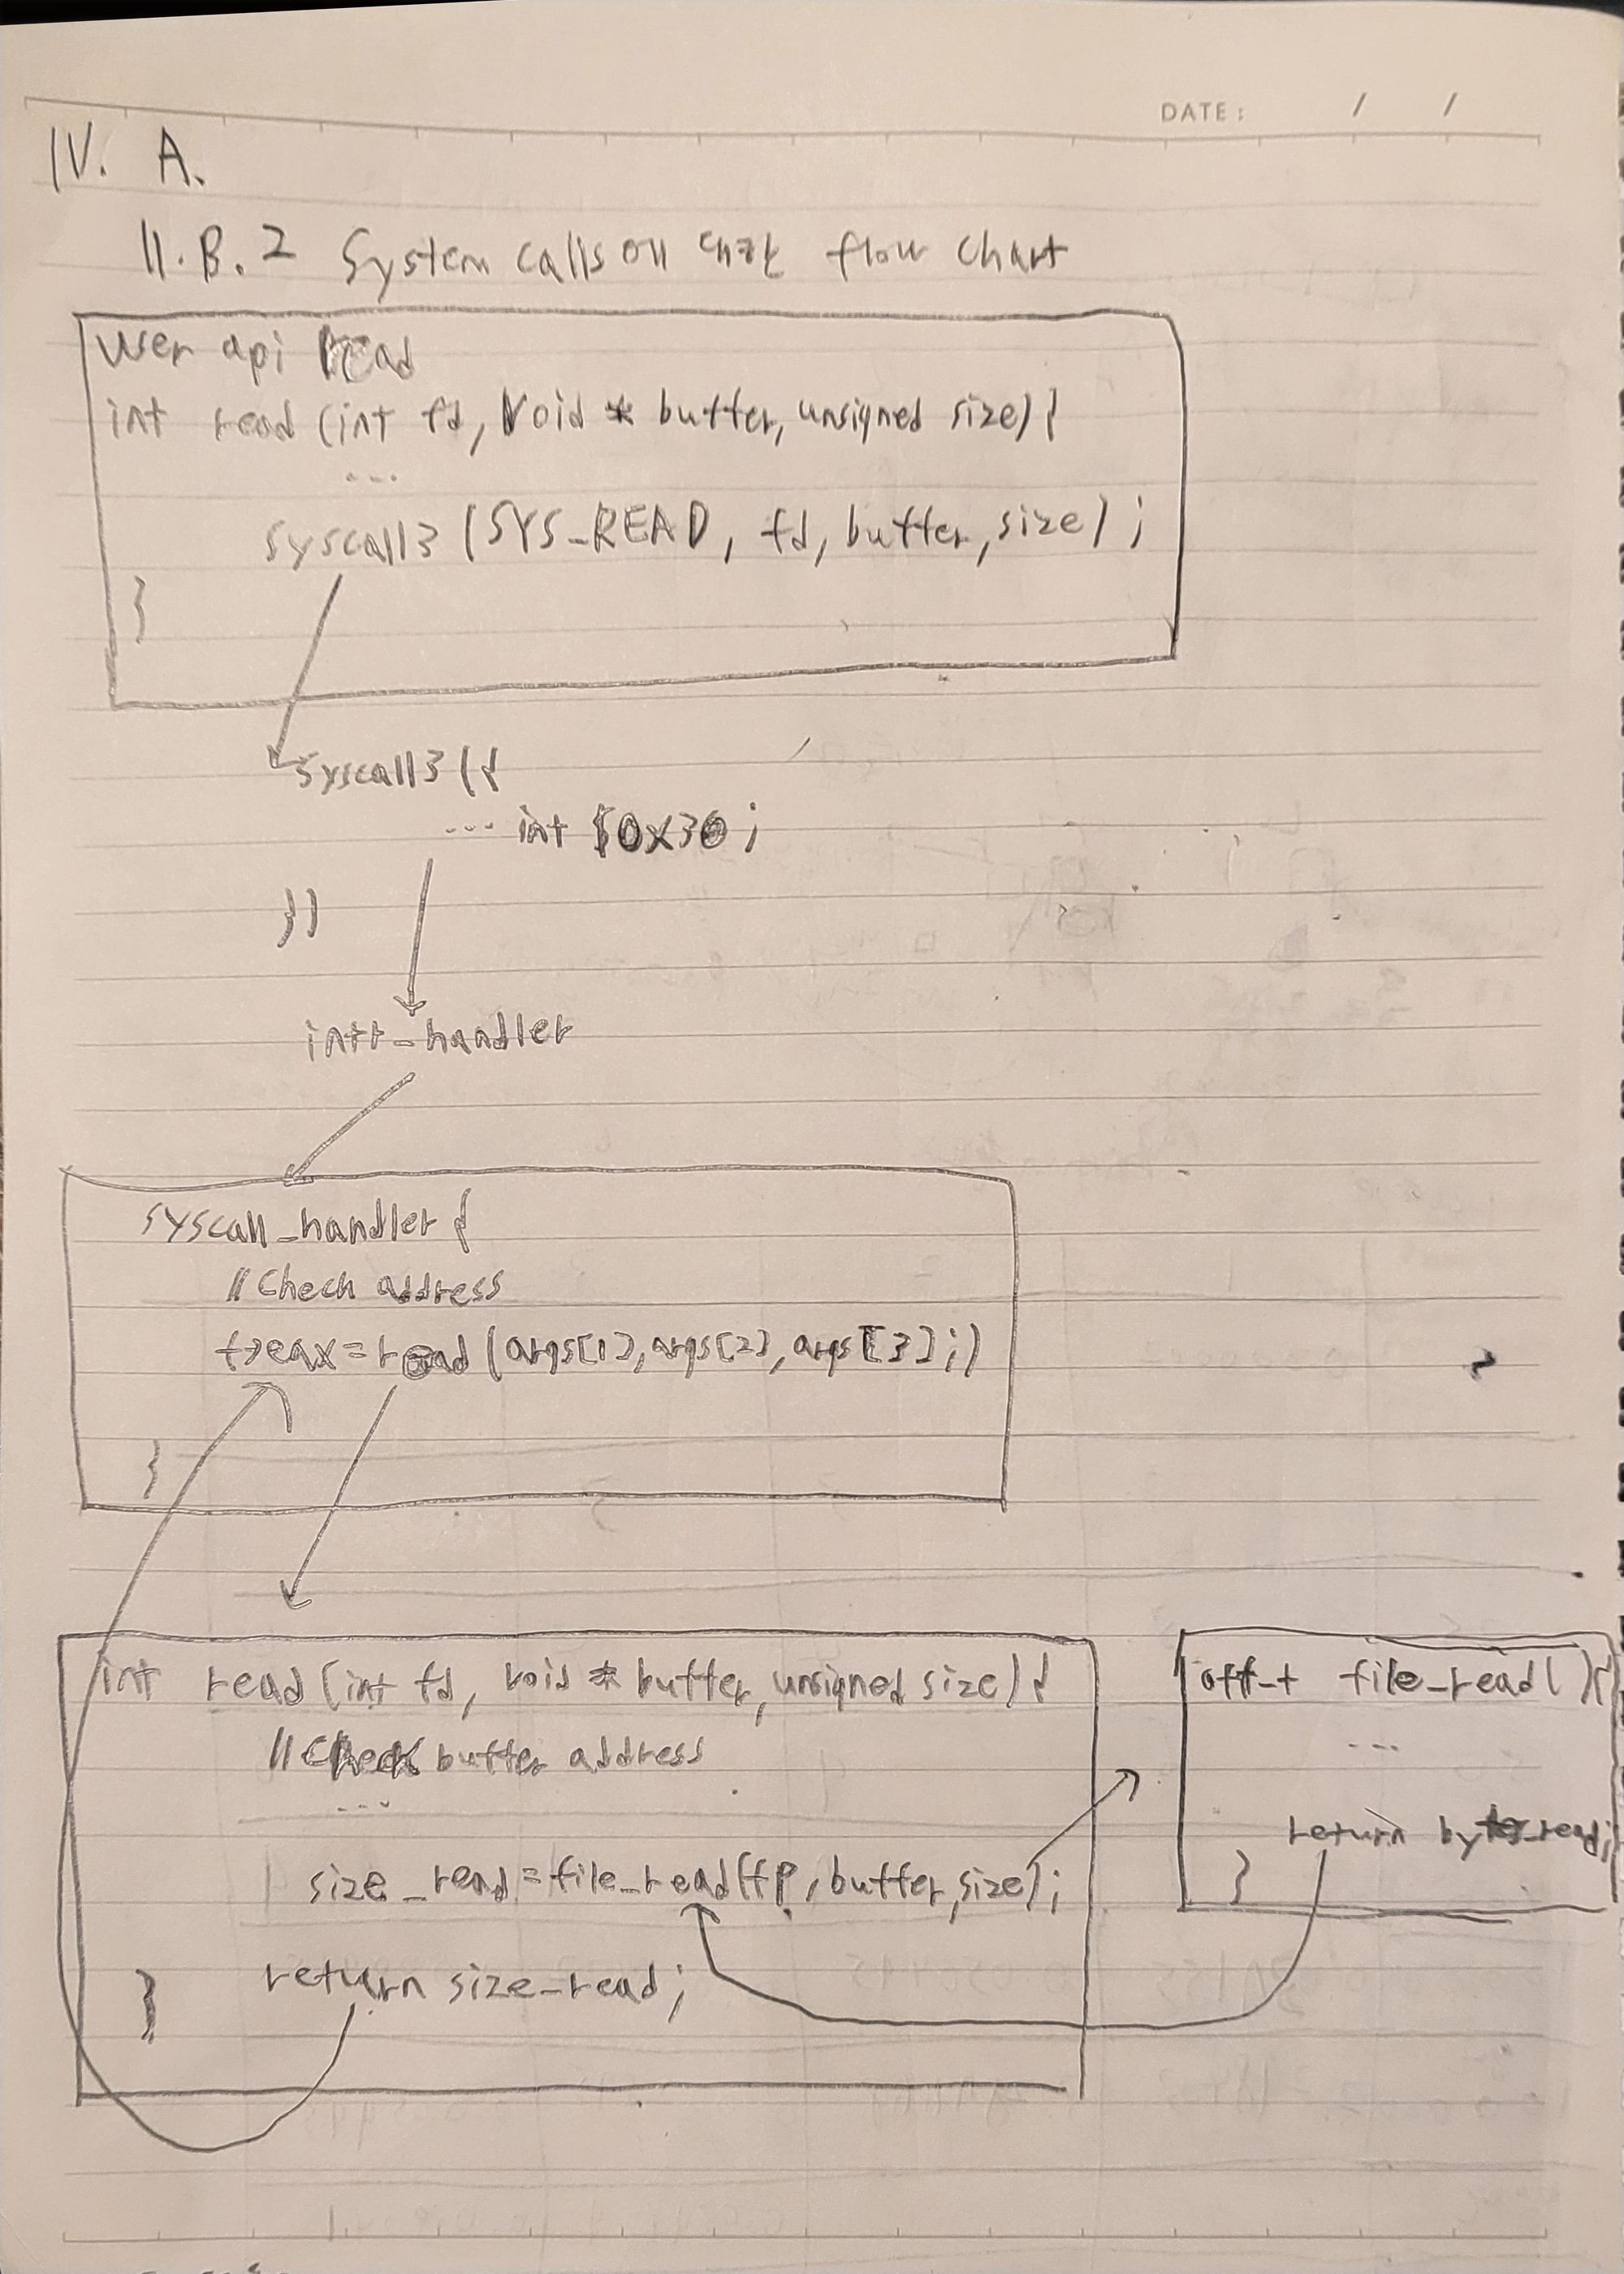 DATE : / /
IV. A.
II.B.2 System calls에 대한 flow chart
User api read
int read (int fd, void * buffer, unsigned size) {
...
syscall3 (SYS_READ, fd, buffer, size) ;
}
syscall3 ({
... int $0x30 ;
})
intr_handler
syscall_handler {
// Check address
f->eax = read (args[1], args[2], args[3] ;)
}
int read (int fd, void * buffer, unsigned size) {
// Check buffer address
...
size_read = file_read (fp, buffer, size) ;
return size_read ;
}
off_t file_read( ) {
...
return bytes_read ;
}